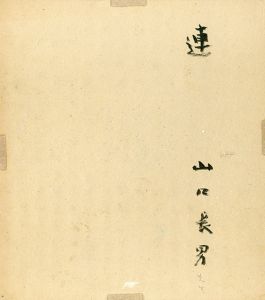 連
山口長男